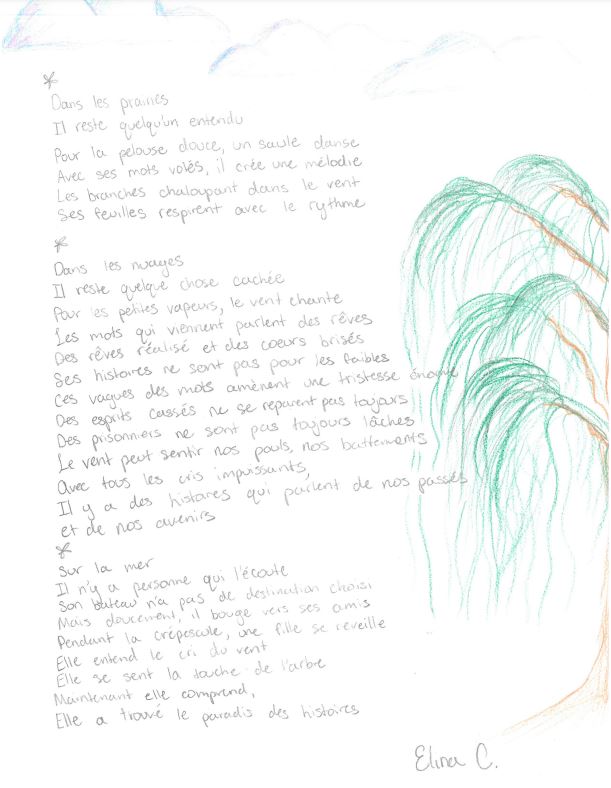 *
Dans les prairies
Il reste quelqu'un entendu
Pour la pelouse douce, un saule danse
Avec ses mots volés, il crée une mélodie
Les branches chaloupant dans le vent
Ses feuilles respirent avec le rythme
*
Dans les nuages
Il reste quelque chose cachée
Pour les petites vapeurs, le vent chante
Les mots qui viennent parlent des rêves
Des rêves réalisé et des coeurs brisés
Ses histoires ne sont pas pour les faibles
Ces vagues des mots amènent une tristesse énorme
Des esprits cassés ne se reparent pas toujours
Des prisonniers ne sont pas toujours lâches
Le vent peut sentir nos pouls, nos battements
Avec tous les cris impuissants,
Il y a des histoires qui parlent de nos passés
et de nos avenirs
*
Sur la mer
Il n'y a personne qui l'écoute
Son bateau n'a pas de destination choisi
Mais doucement, il bouge vers ses amis
Pendant la crépescule, une fille se réveille
Elle entend le cri du vent
Elle se sent la touche de l'arbre
Maintenant elle comprend,
Elle a trouvé le paradis des histoires
Elina C.